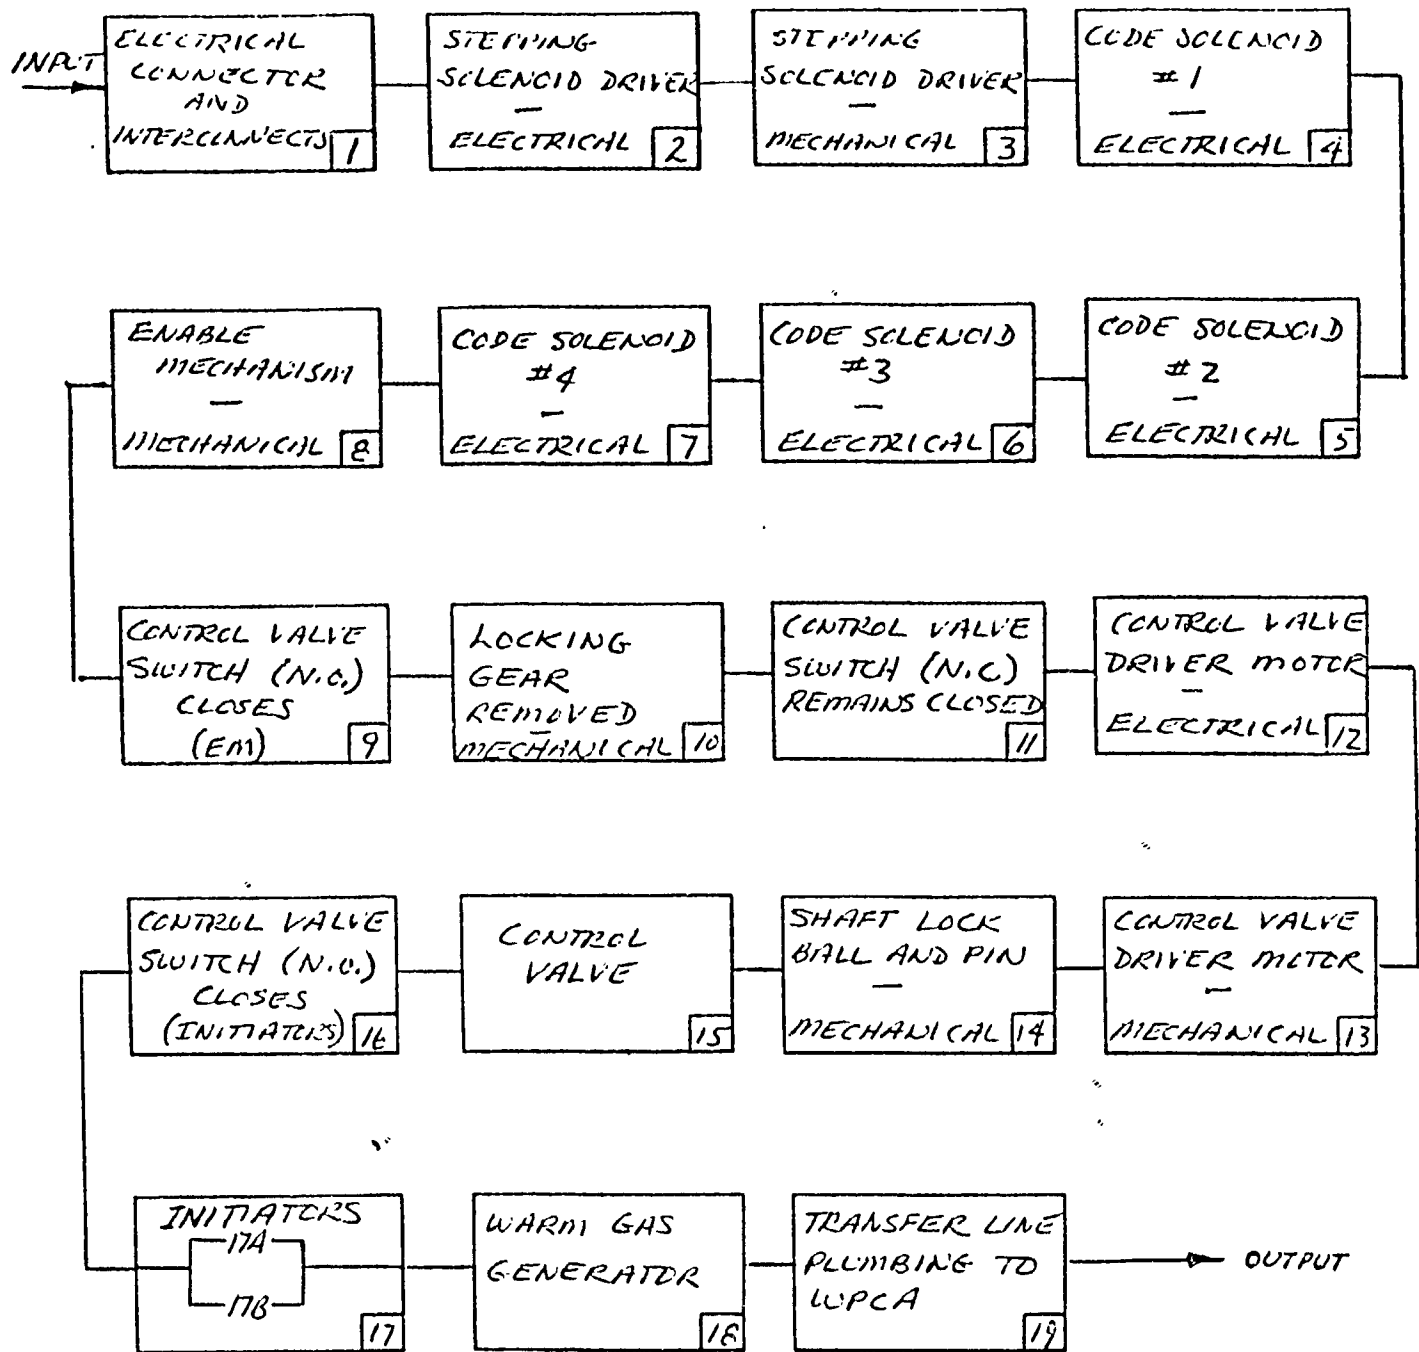 INPUT
ELECTRICAL
CONNECTOR
AND
INTERCONNECTS 1
STEPPING
SOLENOID DRIVER
—
ELECTRICAL 2
STEPPING
SOLENOID DRIVER
—
MECHANICAL 3
CODE SOLENOID
#1
—
ELECTRICAL 4
CODE SOLENOID
#2
—
ELECTRICAL 5
CODE SOLENOID
#3
—
ELECTRICAL 6
CODE SOLENOID
#4
—
ELECTRICAL 7
ENABLE
MECHANISM
—
MECHANICAL 8
CONTROL VALVE
SWITCH (N.O.)
CLOSES
(EM) 9
LOCKING
GEAR
REMOVED
—
MECHANICAL 10
CONTROL VALVE
SWITCH (N.C)
REMAINS CLOSED
11
CONTROL VALVE
DRIVER MOTOR
—
ELECTRICAL 12
CONTROL VALVE
DRIVER MOTOR
—
MECHANICAL 13
SHAFT LOCK
BALL AND PIN
—
MECHANICAL 14
CONTROL
VALVE
15
CONTROL VALVE
SWITCH (N.O.)
CLOSES
(INITIATORS) 16
INITIATORS
17A
17B
17
WARM GAS
GENERATOR
18
TRANSFER LINE
PLUMBING TO
WPCA
19
OUTPUT